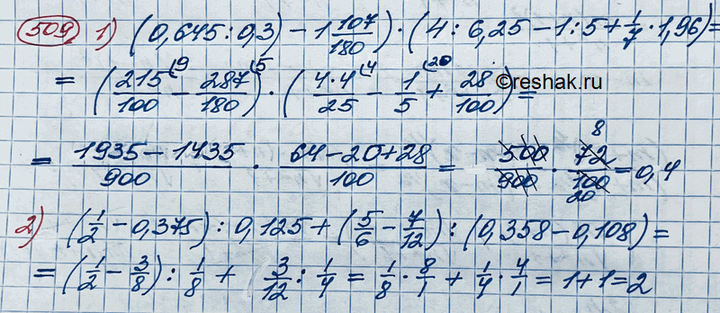 509 1) (0,645 : 0,3) - 1 107/180) · (4 : 6,25 - 1 : 5 + 1/7 · 1,96) =
= (215/100 (9 - 287/180 (5) · (4·4/25 (4 - 1/5 (20 + 28/100) =
©reshak.ru
= 1935 - 1435/900 · 64 - 20 + 28/100 = 500/900 · 72/100 8 20 = 0,4
2) (1/2 - 0,375) : 0,125 + (5/6 - 7/12) : (0,358 - 0,108) =
= (1/2 - 3/8) : 1/8 + 3/12 : 1/4 = 1/8 · 8/1 + 1/4 · 4/1 = 1 + 1 = 2